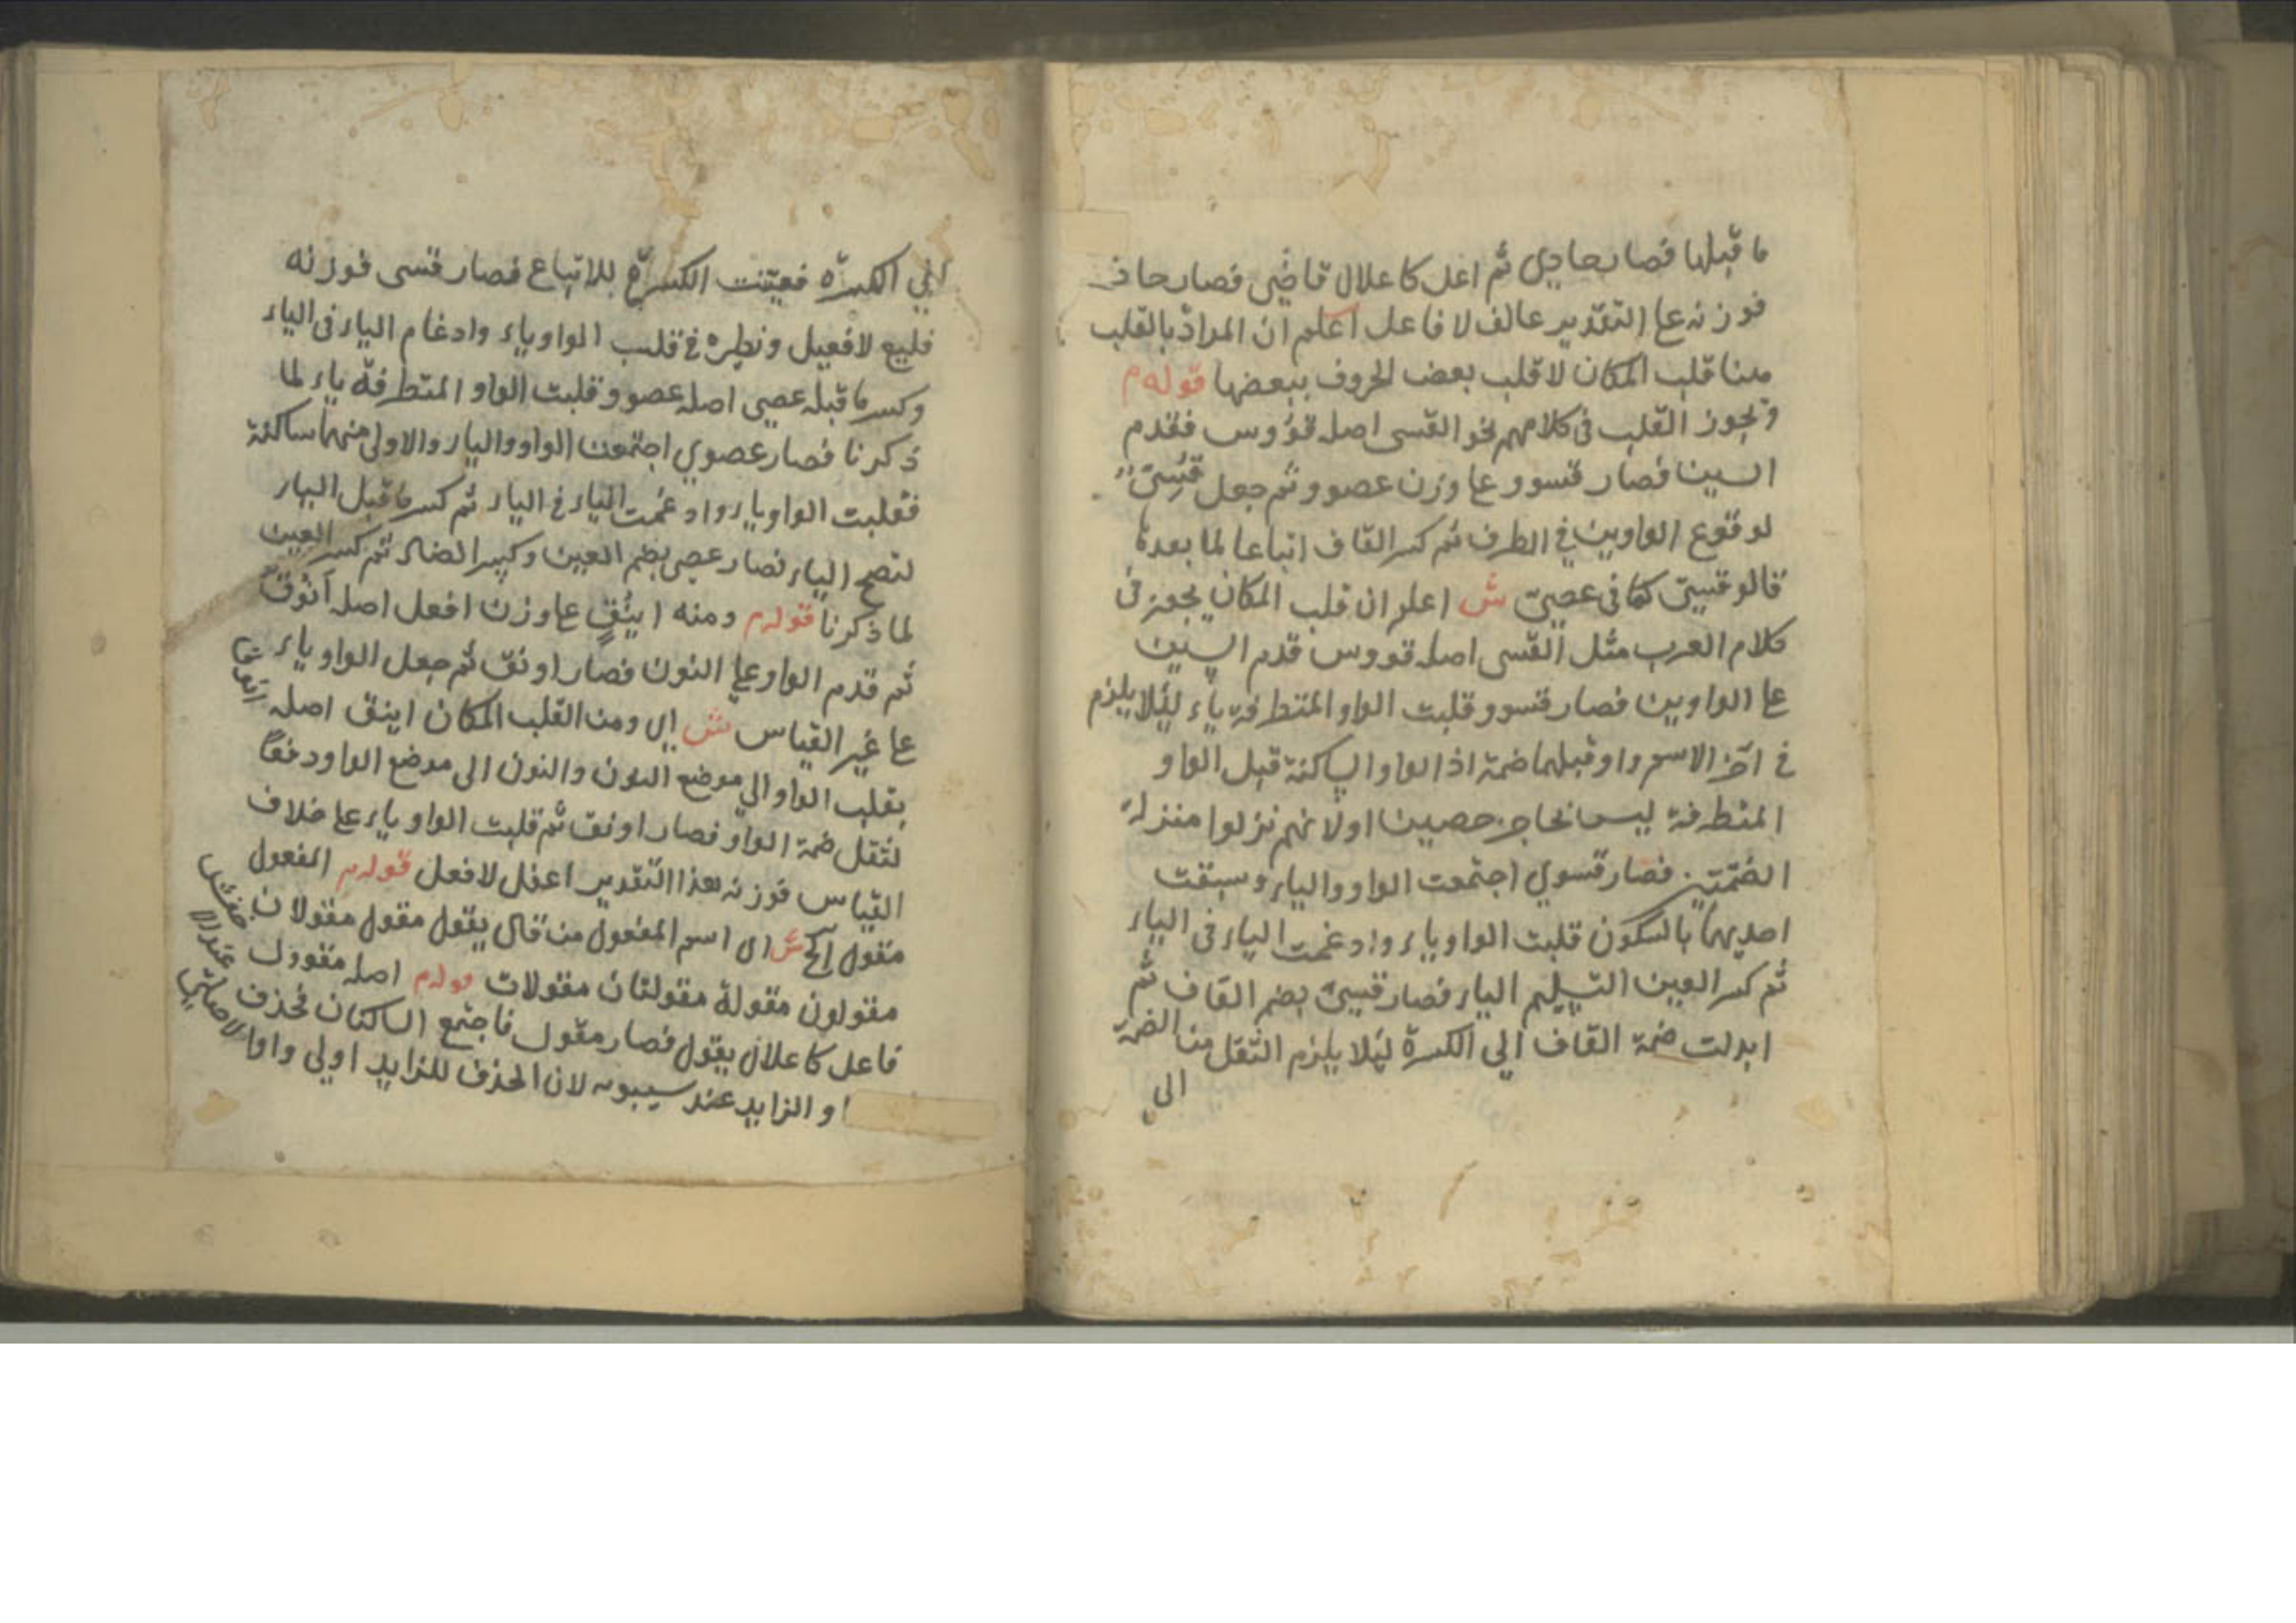 ما قبلها فصار حادي ثم اعل كاعلال قاضي فصار حاد
فوزنه عا التقدير عالف لا فاعل اعلم ان المراد بالقلب
هنا قلب المكان لا قلب بعض الحروف ببعضها قوله م
ويجوز القلب في كلامهم نحو القسى اصله قووس فقدم
السين فصار قسوو عا وزن عصوو ثم جعل قسى
لوقوع الواوين في الطرف ثم كسر القاف اتباعا لما بعده
قالو قسى كما في عصى ش اعلم ان قلب المكان يجوز في
كلام العرب مثل القسى اصله قووس قدم السين
عا الواوين فصار قسوو قلبت الواو المتطرفة ياء لئلا يلزم
في اخر الاسم واو قبلهما ضمة اذ الواو الساكنة قبل الواو
المتطرفة ليس بحاجز حصين اولانهم نزلوا منزلة
الضمتين فصار قسوي اجتمعت الواو والياء وسبقت
احديهما بالسكون قلبت الواو ياء وادغمت الياء في الياء
ثم كسر العين التسليم الياء فصار قسى بضم القاف ثم
ابدلت ضمة القاف الي الكسرة لئلا يلزم الثقل من الضمة
الى
الي الكسرة فعينت الكسرة للاتباع فصار قسى فوزنه
فليع لا فعيل ونظيره في قلب الواو ياء وادغام الياء في الياء
وكسر ما قبله عصي اصله عصوو قلبت الواو المتطرفة ياء لما
ذكرنا فصار عصوي اجتمعت الواو والياء والاولى منهما ساكنة
فقلبت الواو ياء وادغمت الياء في الياء ثم كسر ما قبل الياء
لتصح الياء فصار عصى بضم العين وكسر الصاد ثم كسر العين
لما ذكرنا قوله م ومنه اينق عا وزن افعل اصله انوق
ثم قدم الواو علي النون فصار اونق ثم جعل الواو ياء
عا غير القياس ش اي ومن القلب المكان اينق اصله انوق
بقلب الواو الي موضع النون والنون الى موضع الواو دفعا
لثقل ضمة الواو فصار اونق ثم قلبت الواو ياء عا خلاف
القياس فوزنه بهذا التقدير اعفل لا فعل قوله م المفعول
مقول الخ ش اى اسم المفعول من قال يقول مقول مقولان
مقولون مقولة مقولتان مقولات قوله م اصله مقوول
فاعل كاعلال يقول فصار مقول فاجتمع الساكنان فحذف
او الزايد عند سيبويه لان الحذف للزايد اولى واوا